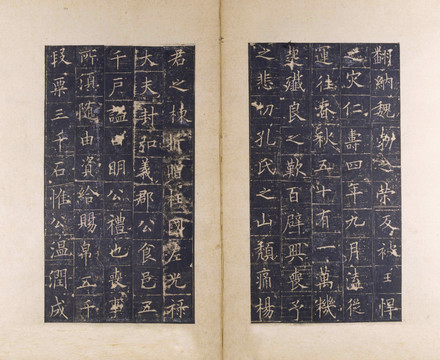 翻納魏勃之榮反被王悍
之災仁壽四年九月溘從
運往春秋五十有一萬機
起殲良之歎百辟興喪予
之悲切孔氏之山頹痛楊
君之棟折贈柱國左光祿
大夫封弘義郡公食邑五
千戶謚曰明公禮也喪事
所湏隨由資給賜帛五千
段粟三千石惟公溫潤成